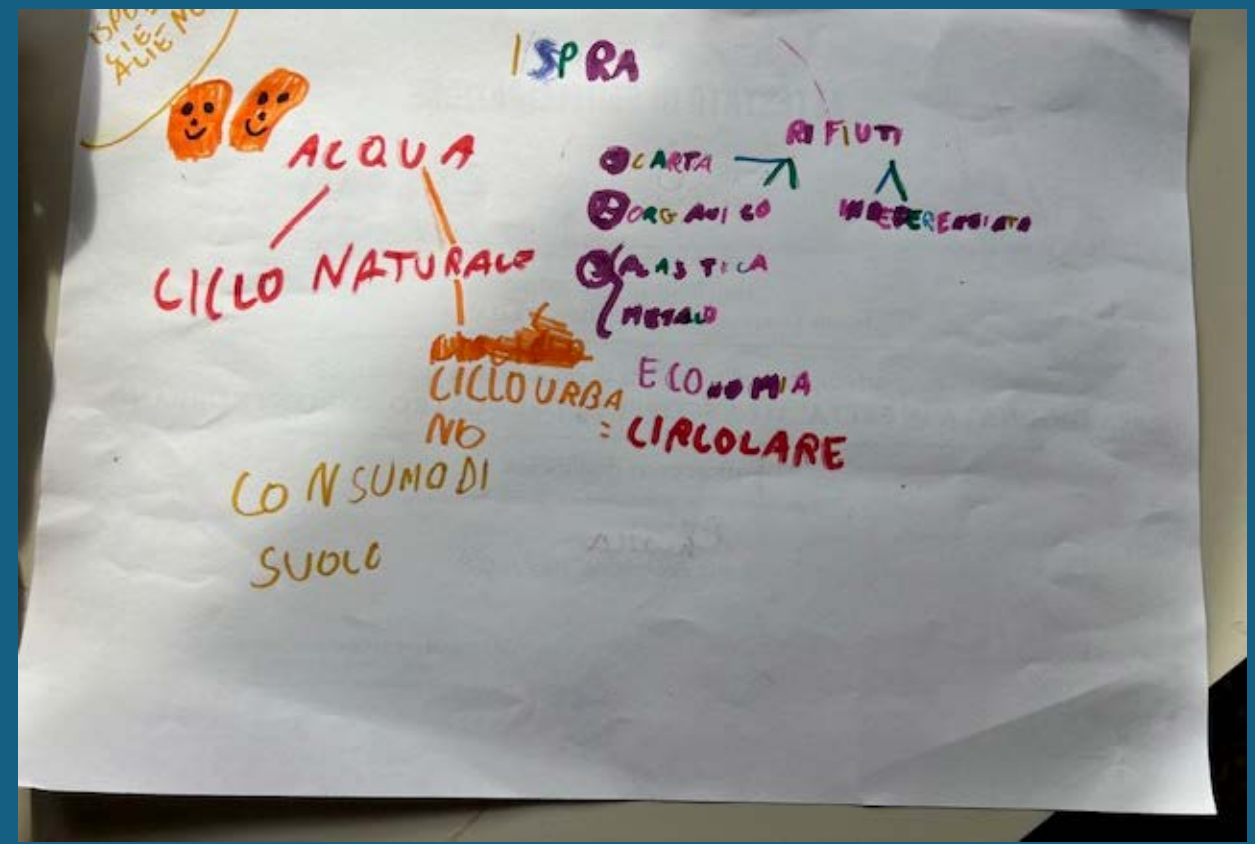 ALIENO
ISPRA
ACQUA
CICLO NATURALE
CICLO URBA
NO
CONSUMO DI
SUOLO
RIFIUTI
CARTA
ORGANICO
PLASTICA
METALLO
ECONOMIA
= CIRCOLARE